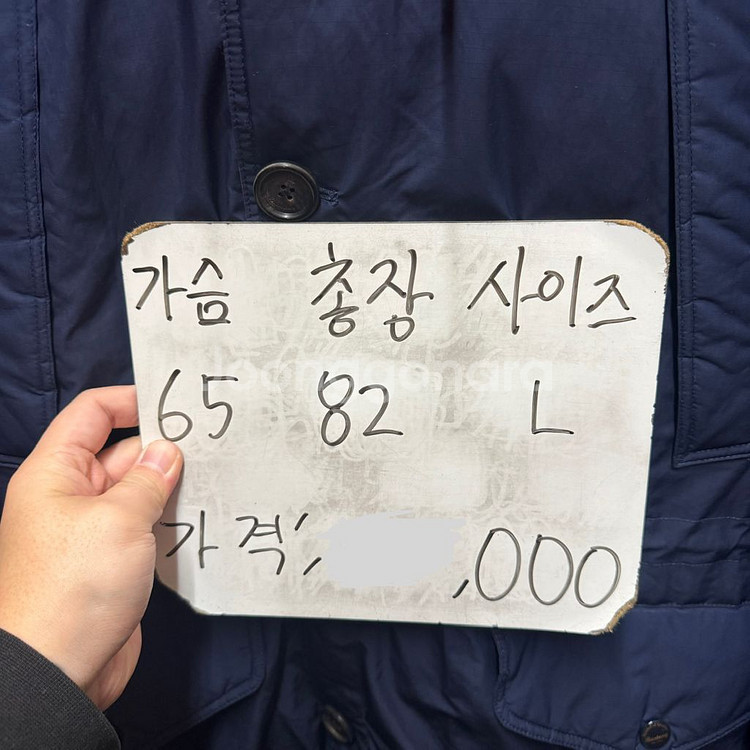 가슴 총장 사이즈
65 82 L
가격; ,000